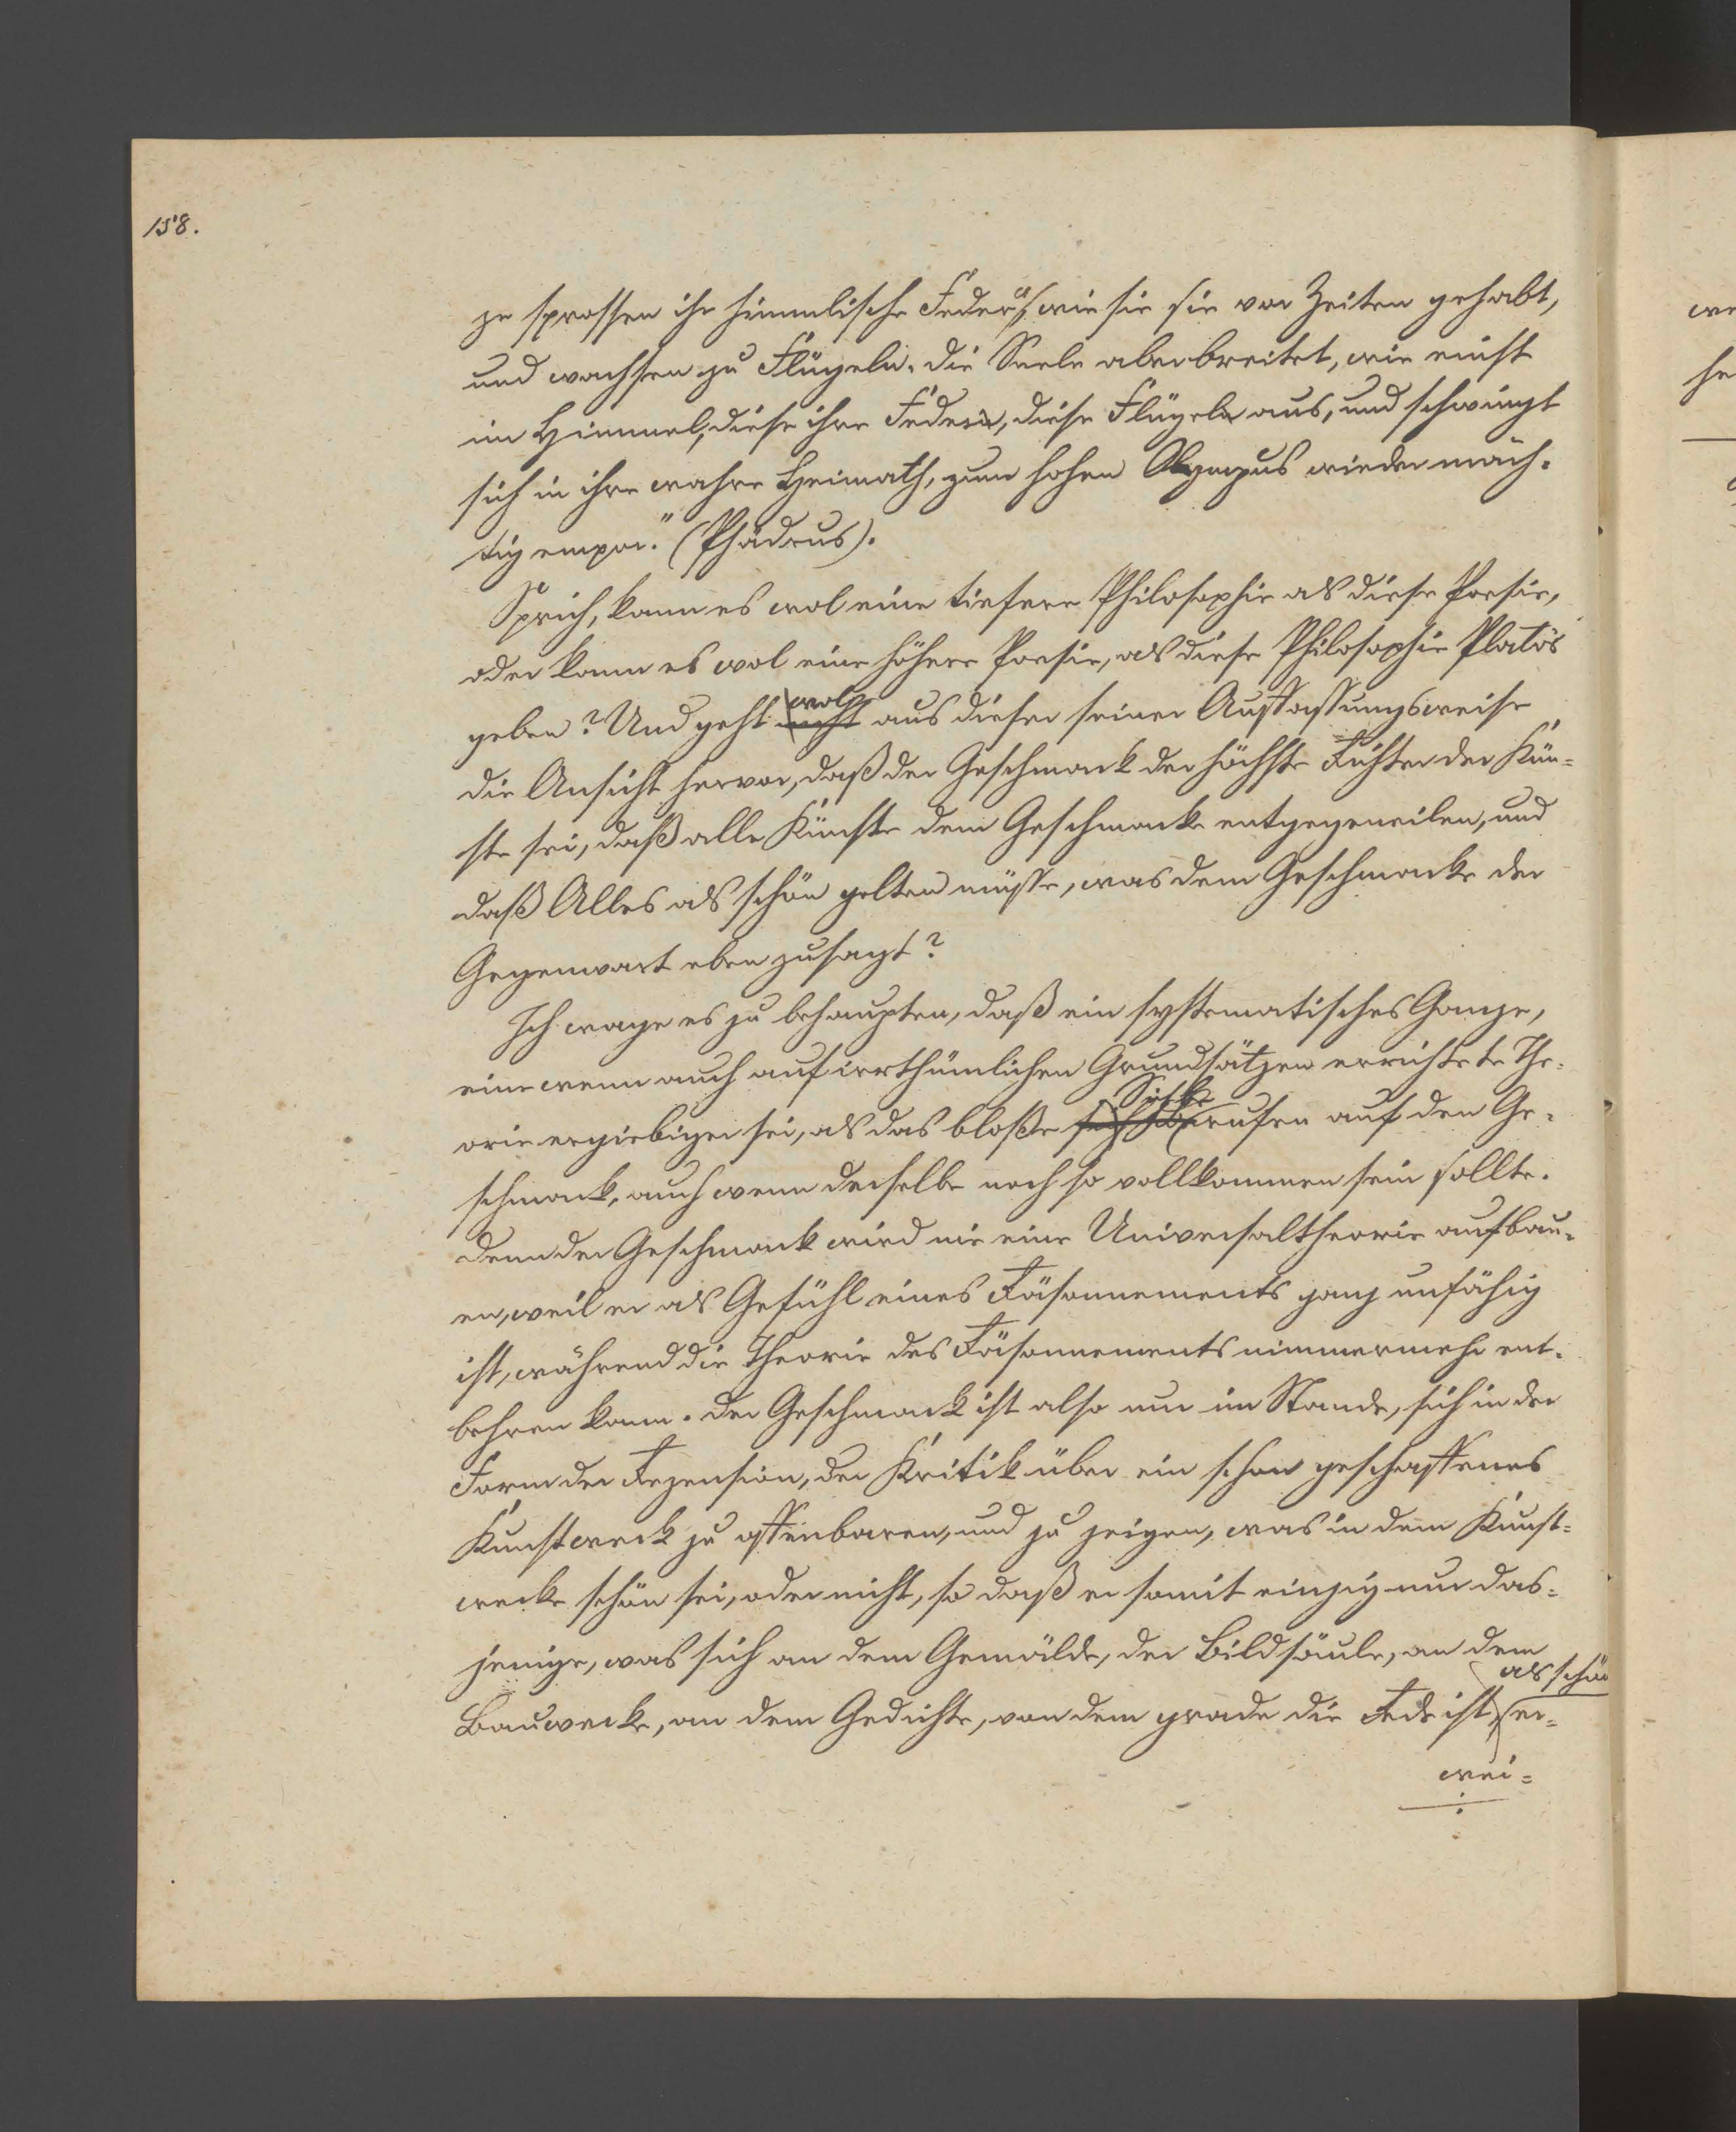 158.
ze sprossen ihr himmlische Federn, wie sie sie vor Zeiten gehabt,
und wachsen zu Flügeln. Die Seele aber breitet, wie einst
im Himmel, diese ihre Federn, diese Flügeln aus, und schwingt
sich in ihre wahre Heimath, zum hohen Olympus wieder mäch-
tig empor." (Phädrus).
Sprich, kann es wol eine tiefere Philosophie als diese Poesie,
oder kann es wol eine höhere Poesie, als diese Philosophie Plato's
wol
geben? Und geht nicht aus dieser seiner Auffassungsweise
die Ansicht hervor, daß der Geschmack der höchste Richter der Kün-
ste sei, daß alle Künste dem Geschmacke entgegeneilen, und
daß Alles als schön gelten müsse, was dem Geschmacke der
Gegenwart eben zusagt?
Ich wage es zu behaupten, daß ein systematisches Ganze,
eine wenn auch auf irrthümlichen Grundsätzen errichtete The-
Sichbe
orie ergiebiger sei, als das bloße rufen auf den Ge-
schmack, auch wenn derselbe noch so vollkommen sein sollte.
Denn der Geschmack wird nie eine Universaltheorie aufbau-
en, weil er als Gefühl eines Räsonnements ganz unfähig
ist, während die Theorie des Räsonnements nimmermehr ent-
behren kann. Der Geschmack ist also nur im Stande, sich in der
Form der Rezension, der Kritik über ein schon geschaffenes
Kunstwerk zu offenbaren, und zu zeigen, was in dem Kunst-
werke schön sei, oder nicht, so daß er somit einzig nur das-
jenige, was sich an dem Gemälde, der Bildsäule, an dem
als schön
Bauwerke, an dem Gedichte, von dem grade die Rede ist, er-
wei-
we
he